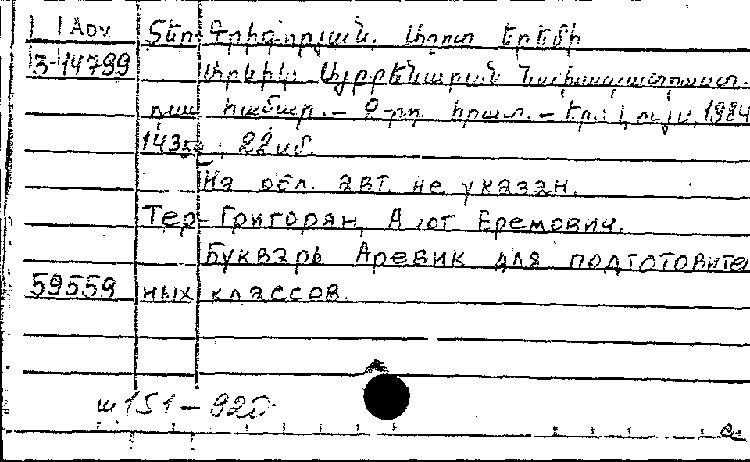 1 Aov Տեր-Գրիգորյան, Աշոտ Երեմի
3-14799 Արևիկ: Այբբենարան նախապատրաստ.
դաս. համար. - 2-րդ հրատ. - Եր.: Լույս, 1984
143 ; 22 սմ.
На обл. авт. не указан.
Тер-Григорян, А от Еремович.
Букварь Аревик для подготовите
59559 ных классов.
ш151-920